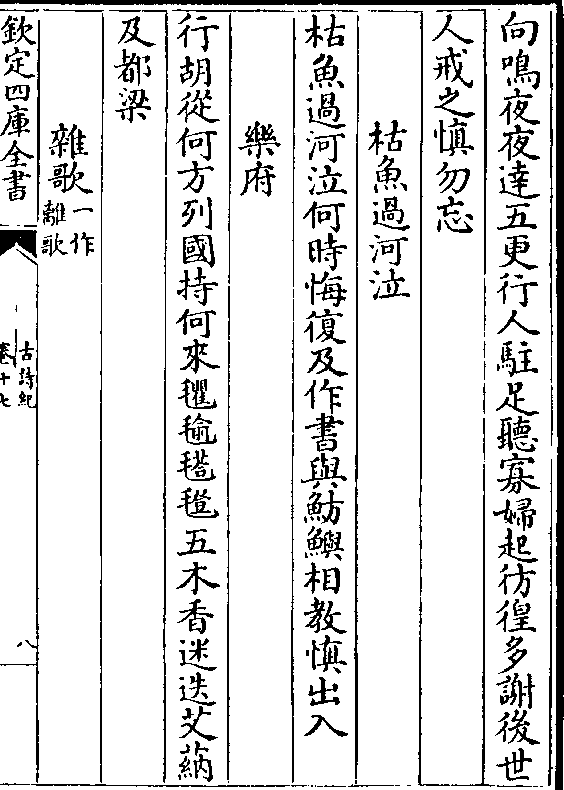 向鳴夜夜達五更行人駐足聽寡婦起彷徨多謝後世
人戒之慎勿忘
枯魚過河泣
枯魚過河泣何時悔復及作書與魴鱮相教慎出入
樂府
行胡從何方列國持何來氍毹㲮㲪五木香迷迭艾蒳
及都梁
雜歌一作離歌
欽定四庫全書
古詩紀
卷十七
八